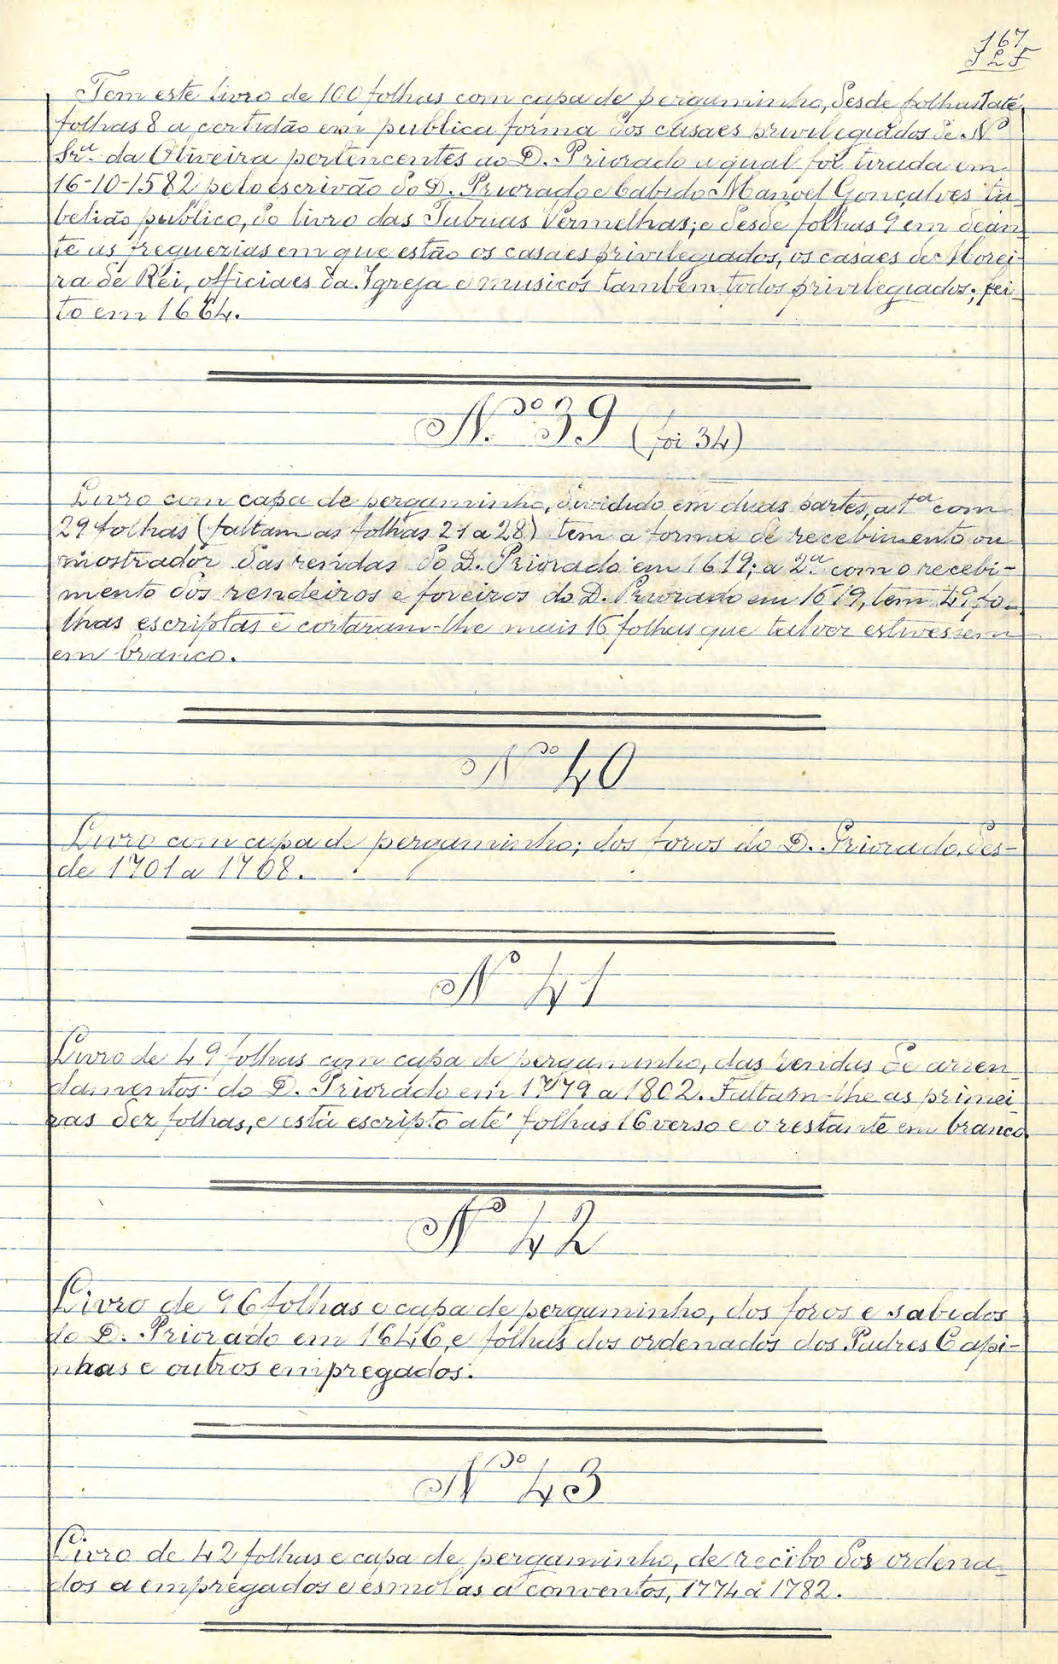 167
JLF
Tem este livro de 100 folhas com capa de pergaminho, desde folhas 1 até
folhas 8 a certidão em publica forma dos casaes privilegiados de N
Srª. da Oliveira pertencentes ao D. Priorado a qual foi tirada em
16-10-1582 pelo escrivão do D. Priorado e Cabido Manoel Gonçalves ta-
belião publico, do livro das Tabuas Vermelhas; e desde folhas 9 em dean-
te as freguerias em que estão os casaes privilegiados, os casaes de Morei-
ra de Rei, officiaes da Igreja e musicos tambem todos privilegiados; fei-
to em 1664.
N.º 39 (foi 34)
Livro com capa de pergaminho, dividido em duas partes, a 1ª com
29 folhas (faltam as folhas 21 a 28) tem a forma de recebimento ou
mostrador das rendas do D. Priorado em 1619; a 2ª com o recebi-
mento dos rendeiros e foreiros do D. Priorado em 1619, tem 49 fo-
lhas escriptas e cortaram-lhe mais 16 folhas que talvez estivessem
em branco.
Nº 40
Livro com capa de pergaminho; dos foros do D. Priorado, des-
de 1701 a 1708.
Nº 41
Livro de 49 folhas com capa de pergaminho, das rendas de arren-
damentos do D. Priorado em 1779 a 1802. Faltam-lhe as primei-
ras dez folhas, e está escripto até folhas 16 verso e o restante em branco
Nº 42
Livro de 96 folhas e capa de pergaminho, dos foros e sabidos
do D. Priorado em 1646, e folhas dos ordenados dos Padres Capi-
nhas e outros empregados.
Nº 43
Livro de 42 folhas e capa de pergaminho, de recibo dos ordena-
dos a empregados e esmolas a conventos, 1774 a 1782.